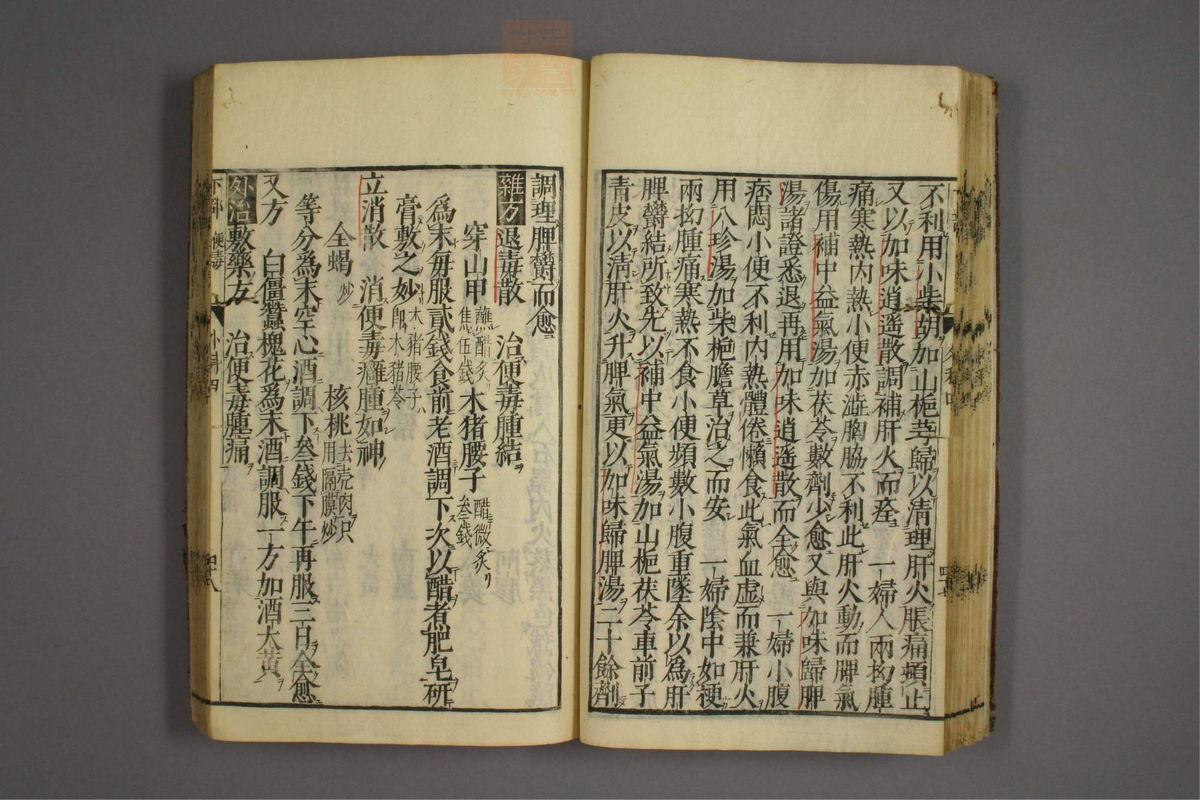 不利用小柴胡加山梔芎歸以清理肝火脹痛頓止
又以加味逍遙散調補肝火而痊 一婦人兩拗腫
痛寒熱內熱小便赤澁胸脇不利此肝火動而脾氣
傷用補中益氣湯加茯苓數劑少愈又與加味歸脾
湯諸證悉退再用加味逍遙散而全愈 一婦小腹
痞悶小便不利內熱體倦懶食此氣血虛而兼肝火
用八珍湯加柴梔膽草治之而安 一婦陰中如梗
兩拗腫痛寒熱不食小便頻數小腹重墜余以為肝
脾欝結所致先以補中益氣湯加山梔茯苓車前子
青皮以淸肝火升脾氣更以加味歸脾湯二十餘劑
調理脾欝而愈
雜方 退毒散 治便毒腫結
穿山甲 蘸醋炙焦伍錢 木猪腰子 醋微炙叁錢
爲末每服貳錢食前老酒調下次以醋者肥皂硏
膏敷之妙 木猪腰子卽木猪苓
立消散 消便毒癰腫如神
全蝎 炒 核桃 去売肉只用隔膜炒
等分爲末空心酒調下叁錢下午再服三日全愈
又方 白僵蠶槐花爲末酒調服一方加酒大黃
外治 敷藥方 治便毒腫痛
下部 便毒 四十八